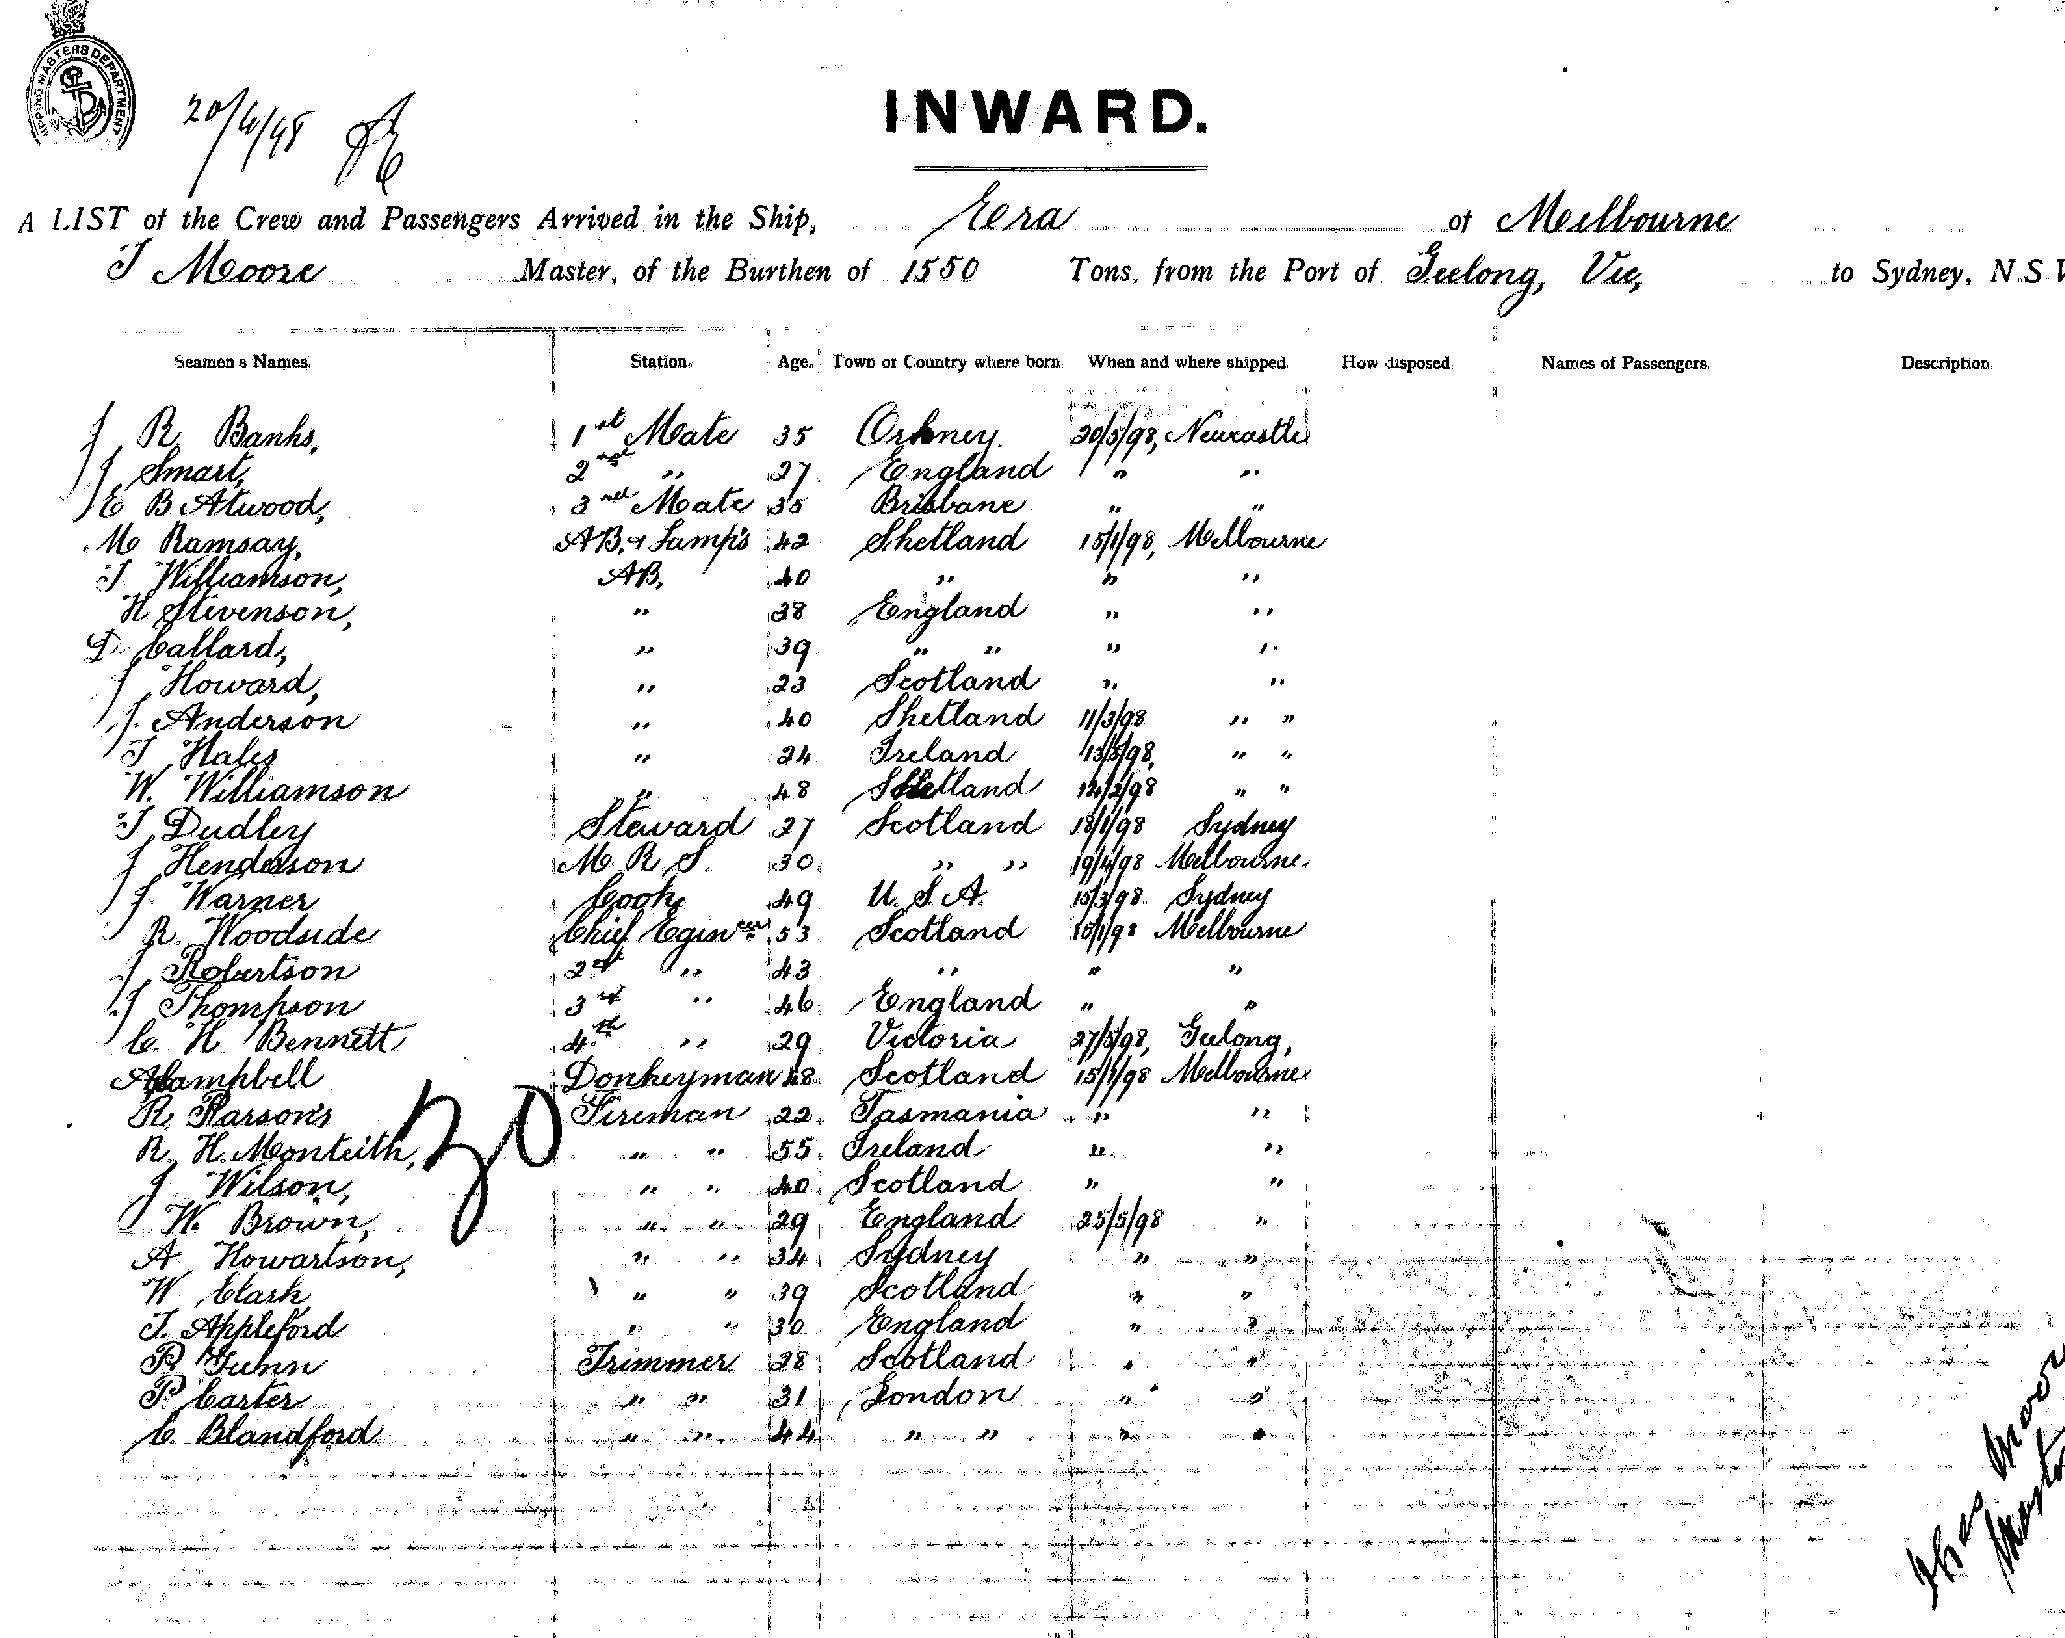 SHIPPING MASTERS DEPARTMENT
20/4/98
INWARD.
A LIST of the Crew and Passengers Arrived in the Ship, Eera of Melbourne
T Moore Master, of the Burthen of 1550 Tons, from the Port of Geelong, Vic, to Sydney, N.S.W
Seamen's Names. Station. Age. Town or Country where born When and where shipped How disposed Names of Passengers. Description
J R Banks, 1st Mate 35 Orkney. 20/5/98, Newcastle
J Smart, 2nd " 27 England " "
E B Atwood, 3rd Mate 35 Brisbane " "
M Ramsay, AB. & Lamps 42 Shetland 15/1/98, Melbourne
T Williamson, AB, 40 " " "
H Stevenson, " 38 England " "
D Callard, " 39 " " " "
J Howard, " 23 Scotland " "
J. Anderson " 40 Shetland 11/3/98 " "
T Hales " 24 Ireland 13/5/98, " "
W. Williamson " 48 Shetland 12/2/98 " "
T Dudley Steward 27 Scotland 18/1/98 Sydney
J Henderson M. R. S. 30 " " 19/4/98 Melbourne.
J. Warner Cook 49 U. S. A. 15/3/98 Sydney
R. Woodside Chief Egineer 53 Scotland 15/1/98 Melbourne
J Robertson 2nd " 43 " " "
J Thompson 3rd " 46 England " "
C. H Bennett 4th " 29 Victoria 27/5/98, Geelong,
A Campbell Donkeyman 48 Scotland 15/1/98 Melbourne
R. Parsons Fireman 22 Tasmania " "
R. H. Monteith, " " 55 Ireland " "
30
J Wilson, " " 40 Scotland " "
W. Brown, " " 29 England 25/5/98 "
A Howartson, " " 34 Sydney " "
W Clark " " 39 Scotland " "
T. Appleford " " 30 England " "
R Gunn Trimmer 28 Scotland " "
P. Carter " " 31 London " "
C. Blandford " " 44 " " " "